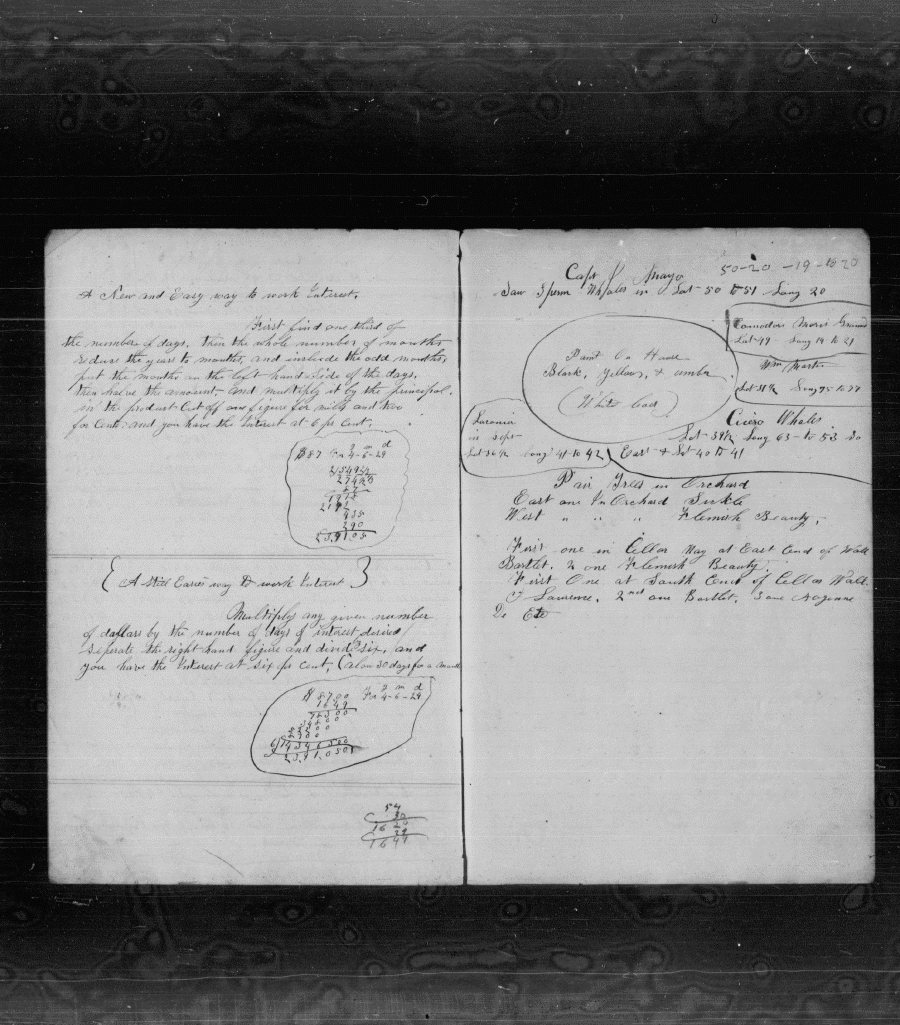 A New and Easy way to work Interest.
First find one third of
the number of days. then the whole number of months
reduse the years to months, and include the odd months,
put the months on the left hand side of the days.
then halve the amount. and multiply it by the principal.
in the product Cut off one figure for mills and two
for Cents. and you have the Interest at 6 pr Cent.
$87 For 4-6-29
23,9105
A Still Easier way to work Interest
Multiply any given number
of dollars by the number of days of interest desired
Seperate the right hand figure and divide six, and
you have the Interest at six pr Cent, (alow 30 days for a month
y m d
$8700 For 4-6-29
1649
78300
34800
54
30
1620
29
1649
50-20 -19- to 20
Capt Mayo
Saw Sperm Whales in Lat-50 to 51 Long 20
Comodore Moris Ground
Lat-49 - Long 19 to 21
Paint On Hand
Black, Yellow, & umber
(White lead)
Cicero Whales
Long 63- to 53 30
in Sept
Long 41 to 42
East & Lat 40 to 41
Pair Trees in Orchard
East one In Orchard Sickle
West " " " Flemish Beauty.
First one in Cellar Way at East End of Wall
Bartlet. 2 one Flemish Beauty.
First One at South End of Cellar Wall
Lawrence. 2nd one Bartlet.